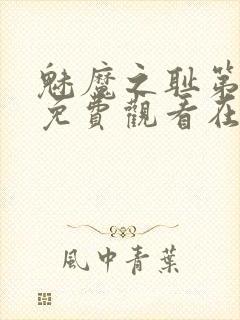 魅魔之耻第
免費觀看在
風中青葉